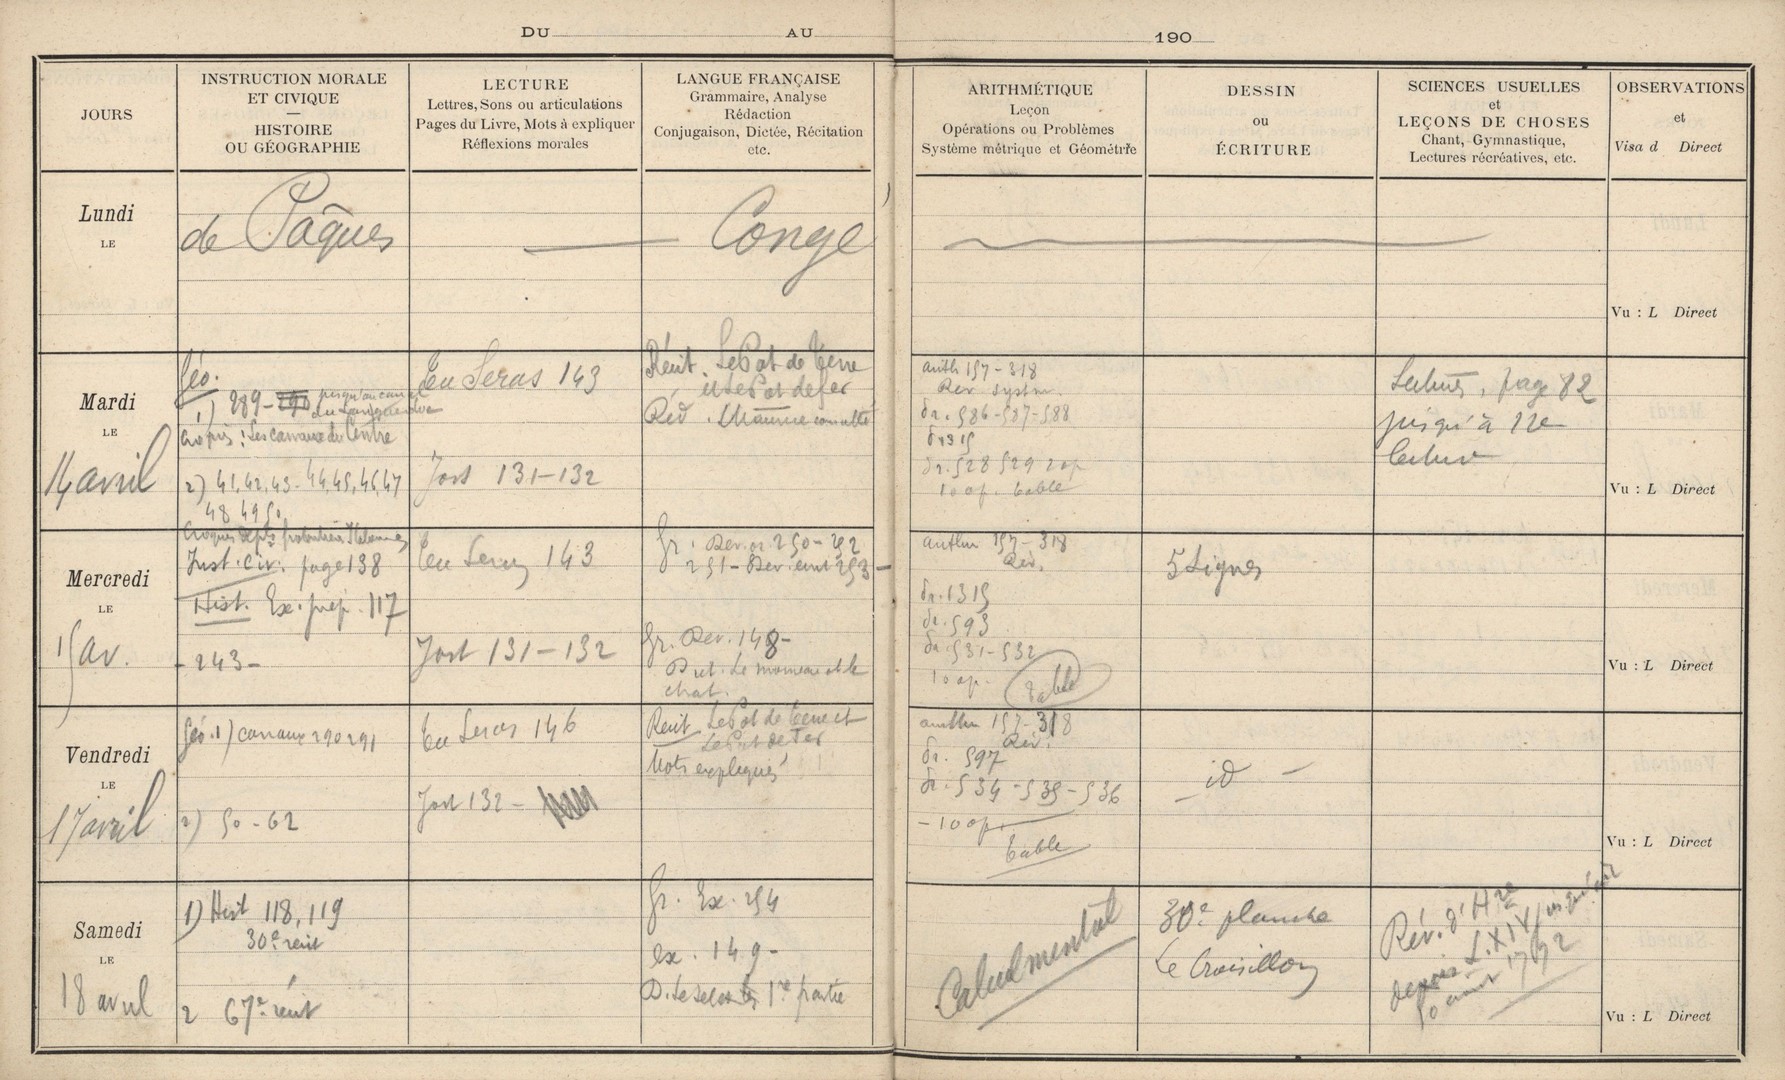 DU AU 190
JOURS
INSTRUCTION MORALE
ET CIVIQUE
HISTOIRE
OU GÉOGRAPHIE
LECTURE
Lettres, Sons ou articulations
Pages du Livre, Mots à expliquer
Réflexions morales
LANGUE FRANÇAISE
Grammaire, Analyse
Rédaction
Conjugaison, Dictée, Récitation
etc.
ARITHMÉTIQUE
Leçon
Opérations ou Problèmes
Système métrique et Géométrie
DESSIN
ou
ÉCRITURE
SCIENCES USUELLES
et
LEÇONS DE CHOSES
Chant, Gymnastique,
Lectures récréatives, etc.
OBSERVATIONS
et
Visa d Direct
Lundi
LE
de Pâques — Congé
Vu : L Direct
Mardi
LE
14 avril
Géo.
1) 289 - jusqu'au canal
du Languedoc
Croquis : Les canaux du Centre
2) 41, 42, 43 - 44, 45, 46, 47
48 49 50
Tu Seras 143
Jost 131-132
Récit. Le Pot de Terre
et le Pot de fer
Réd. Maurice
arith 157-318
Rev. system.
Pr. 586-587-588
1315
Pr. 528 529 2 op
10 op. table
Lecture, page 82
jusqu'à 12e
lecture
Vu : L Direct
Mercredi
LE
15 av.
Croquis
Inst. civ. page 138
Hist. Ex. prép. 117
- 243 -
Tu Seras 143
Jost 131-132
Gr. Rev. 250-252
251 - Dev. 253 -
Gr. Rev. 148 -
Dict. Le moineau et le
chat.
arithm 157-318
Rev.
Pr. 1315
Pr. 593
Pr. 531-532
10 op. table
5 Lignes
Vu : L Direct
Vendredi
LE
17 avril
Géo. 1) canaux 290 291
2) 50-62
Tu Seras 146
Jost 132 -
Récit. Le Pot de Terre et
Le Pot de Fer
Mots expliqués
arithm 157-318
Rev.
Pr. 597
Pr. 534-535-536
- 10 op.
table
- id -
Vu : L Direct
Samedi
LE
18 avril
1) Hist 118, 119
30e récit
2 67e récit
Gr. Ex. 254
ex. 149 -
D. 1re partie
Calcul mental
30e planche
Le Croisillon
Rév. d'Hre
depuis L. XIV jusqu'au
10 août 1792
Vu : L Direct